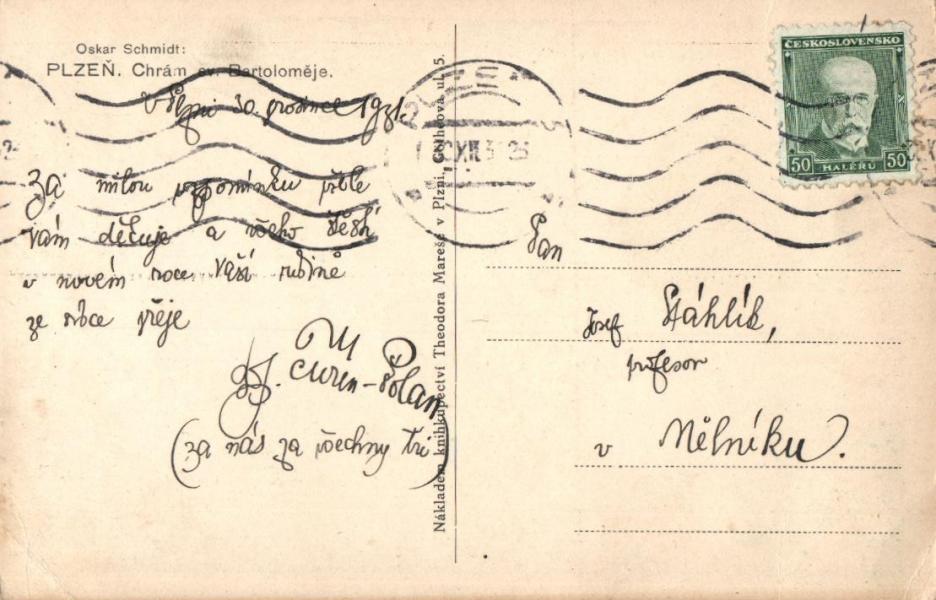 Oskar Schmidt:
PLZEŇ. Chrám sv. Bartoloměje.
V Plzni 30. prosince 1931.
Za milou vzpomínku
Vám děkuje a všeho štěstí
v novém roce Vaší rodině
ze srdce přeje
(za nás za všechny tři)
Nákladem knihkupectví Theodora Mareše v Plzni, Goetheova ul. 5.
ČESKOSLOVENSKO
50 HALÉŘŮ 50
Pan
Josef Stáhlík,
profesor
v Mělníku.